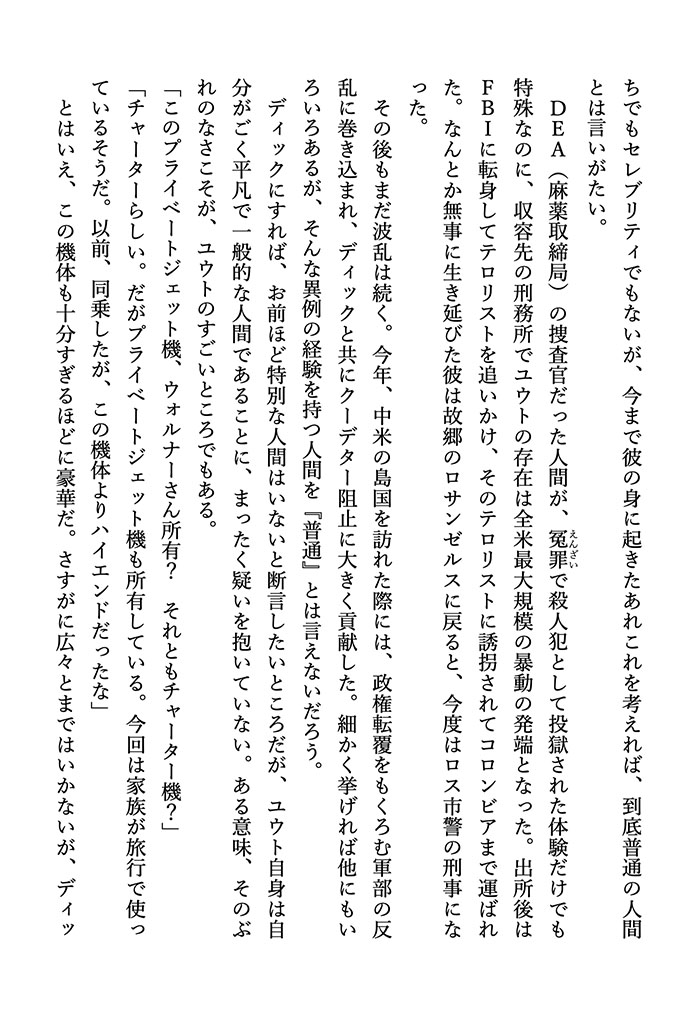 ちでもセレブリティでもないが、今まで彼の身に起きたあれこれを考えれば、到底普通の人間
とは言いがたい。
　ＤＥＡ（麻薬取締局）の捜査官だった人間が、冤罪（えんざい）で殺人犯として投獄された体験だけでも
特殊なのに、収容先の刑務所でユウトの存在は全米最大規模の暴動の発端となった。出所後は
ＦＢＩに転身してテロリストを追いかけ、そのテロリストに誘拐されてコロンビアまで運ばれ
た。なんとか無事に生き延びた彼は故郷のロサンゼルスに戻ると、今度はロス市警の刑事にな
った。
　その後もまだ波乱は続く。今年、中米の島国を訪れた際には、政権転覆をもくろむ軍部の反
乱に巻き込まれ、ディックと共にクーデター阻止に大きく貢献した。細かく挙げれば他にもい
ろいろあるが、そんな異例の経験を持つ人間を『普通』とは言えないだろう。
　ディックにすれば、お前ほど特別な人間はいないと断言したいところだが、ユウト自身は自
分がごく平凡で一般的な人間であることに、まったく疑いを抱いていない。ある意味、そのぶ
れのなさこそが、ユウトのすごいところでもある。
「このプライベートジェット機、ウォルナーさん所有？　それともチャーター機？」
「チャーターらしい。だがプライベートジェット機も所有している。今回は家族が旅行で使っ
ているそうだ。以前、同乗したが、この機体よりハイエンドだったな」
　とはいえ、この機体も十分すぎるほどに豪華だ。さすがに広々とまではいかないが、ディッ